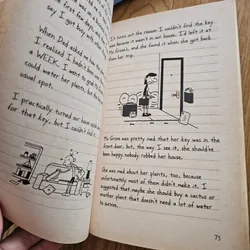 first few days
say, I got busy
When Dad asked me how
I realized I hadn't been
a WEEK. I went to grab
could water her plants, but
usual spot.
I practically turned our house
for that key, but I couldn't find it
It turns out the reason I couldn't find the key
was because it wasn't in our house. I'd left it at
Ms Grove's, and she found it when she got back
from her trip.
Ms Grove was pretty mad that her key was in the
front door, but, the way I see it, she should've
been happy nobody robbed her house.
She was mad about her plants, too, because
unfortunately most of them didn't make it. I
suggested that maybe she should buy a cactus or
another plant that doesn't need a lot of water
to survive.
73